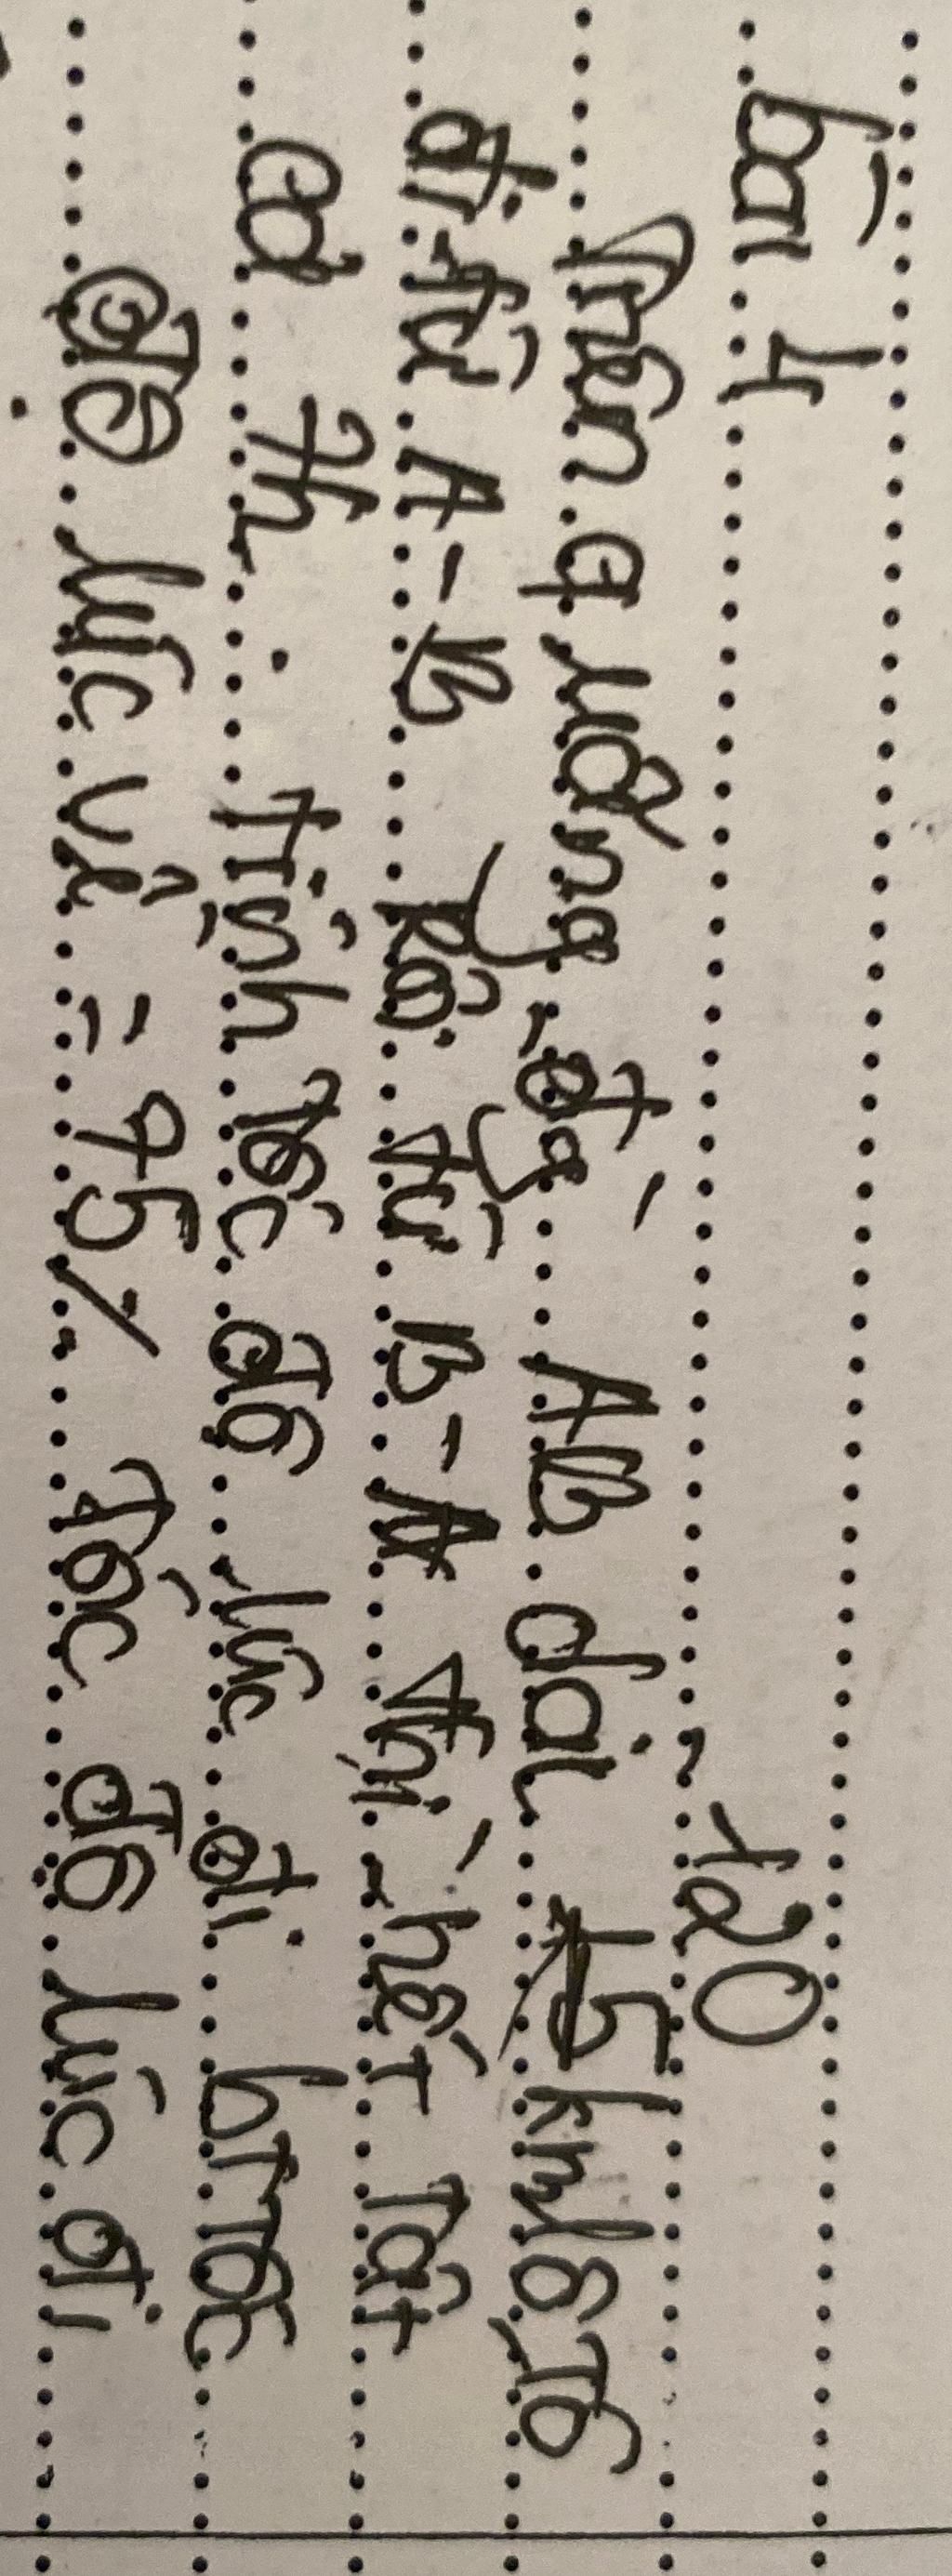 bài 4
120
Trên quãng đg AB dài km 1 ô tô
đi từ A-B rồi từ B-A thì hết tất
cả 7h. tính tốc độ lúc đi bt tốc
độ lúc về = 75% tốc độ lúc đi